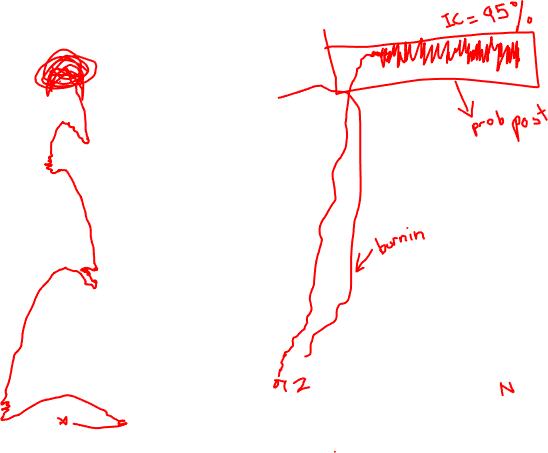 IC = 95%
prob post
burnin
N